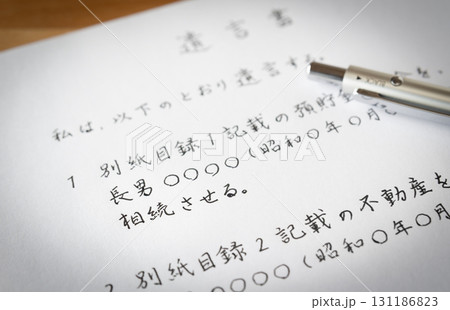 遺言書
私は、以下のとおり遺言する。
1 別紙目録1記載の預貯金を
長男〇〇〇〇(昭和〇年〇月
相続させる。
2 別紙目録2記載の不動産を
〇〇〇〇(昭和〇年〇月
pixta.jp - 131186823